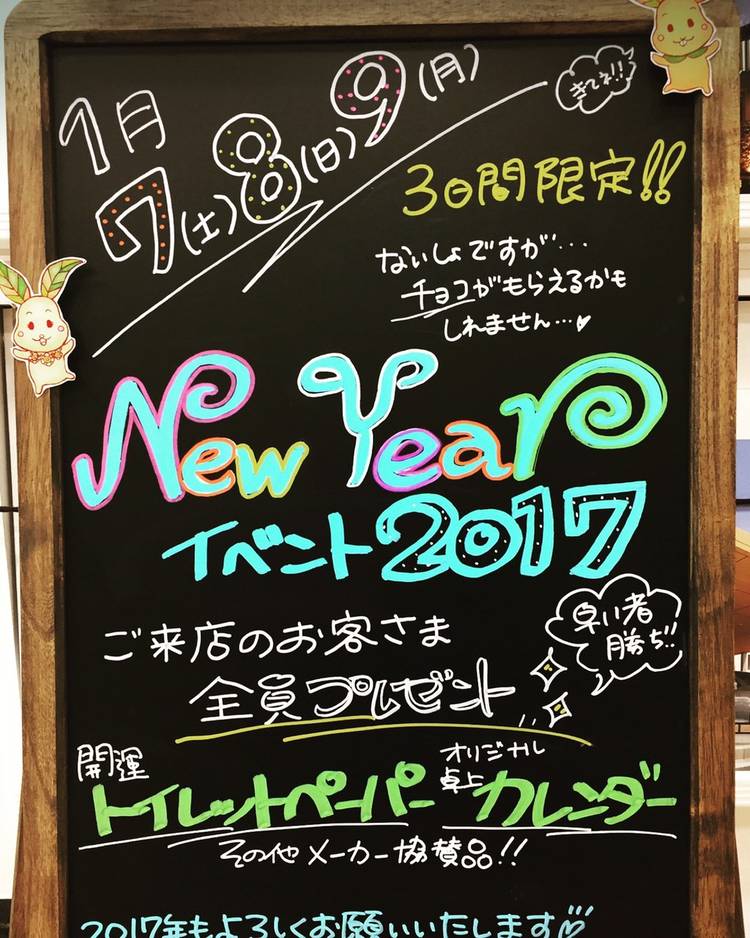 1月
7(土)8(日)9(月)
きてネ!!
3日間限定!!
ないしょですが…
チョコがもらえるかも
しれません…♥
New Year
イベント2017
ご来店のお客さま
全員プレゼント
早い者
勝ち!!
開運
トイレットペーパー
オリジナル
卓上
カレンダー
その他メーカー協賛品!!
2017年もよろしくお願いいたします♡